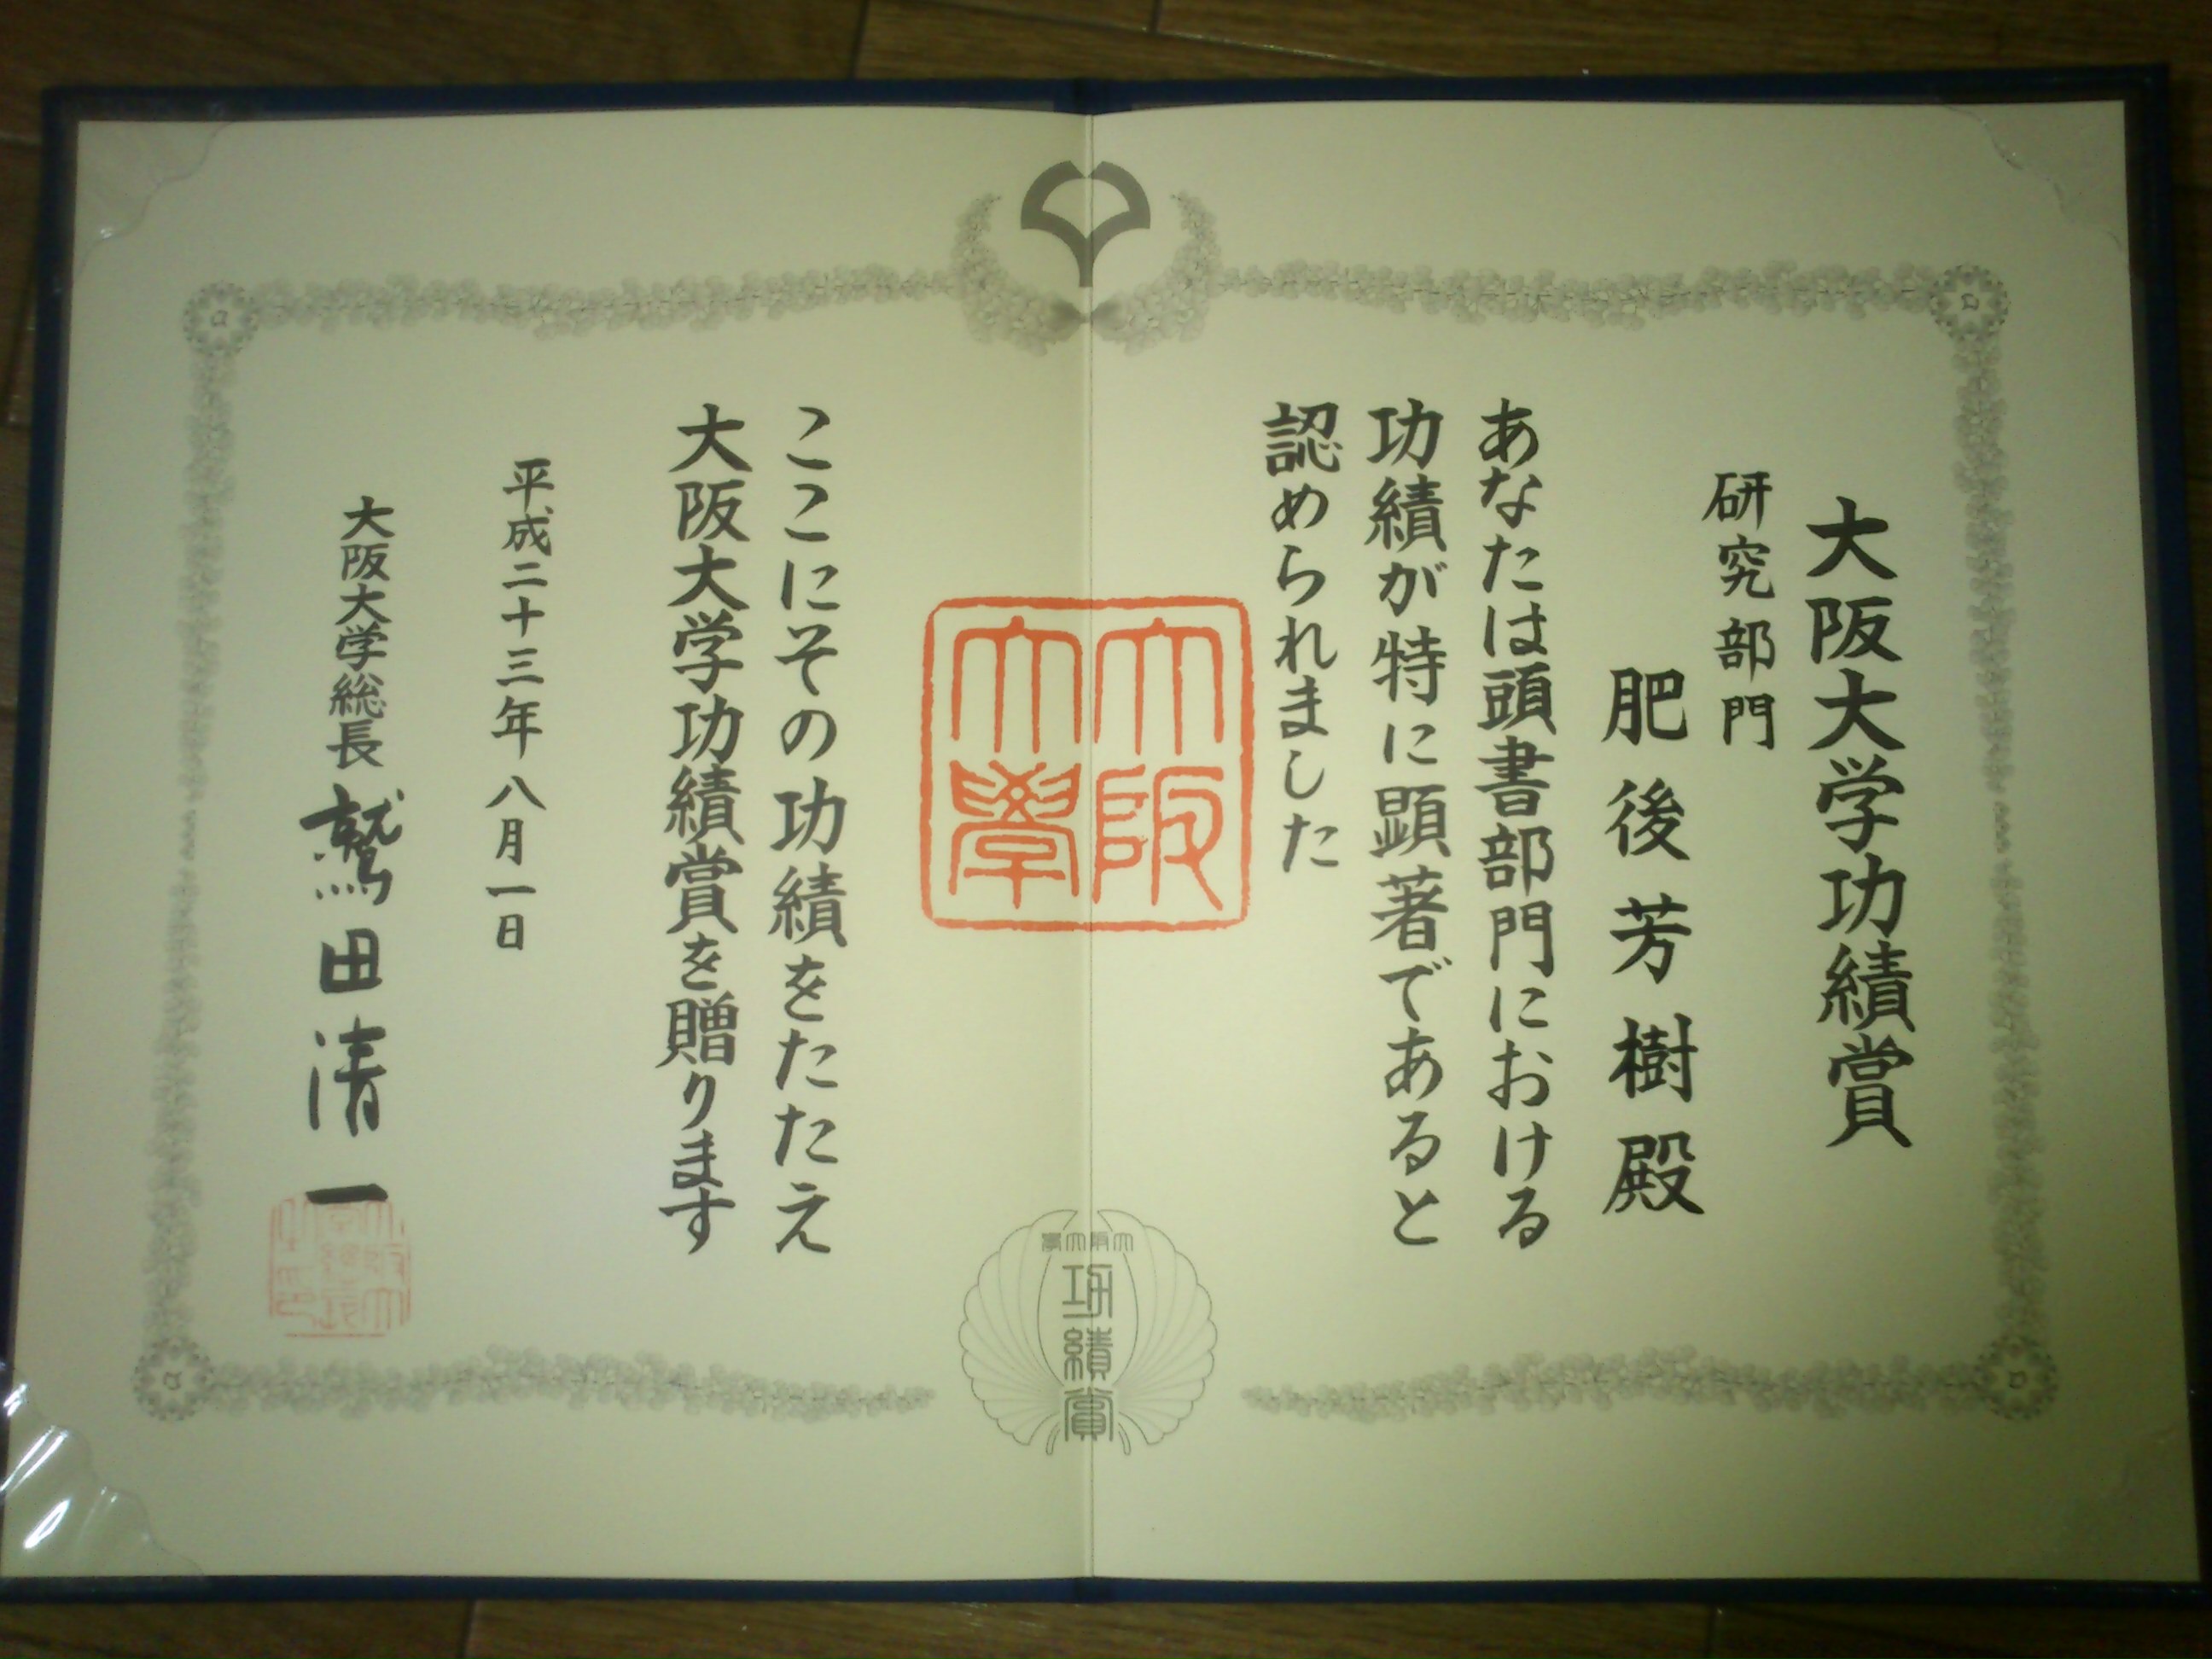 大阪大学功績賞
研究部門
肥後芳樹殿
あなたは頭書部門における
功績が特に顕著であると
認められました
大阪大學
ここにその功績をたたえ
大阪大学功績賞を贈ります
平成二十三年八月一日
大阪大学総長 鷲田清一
大阪大學
功績賞